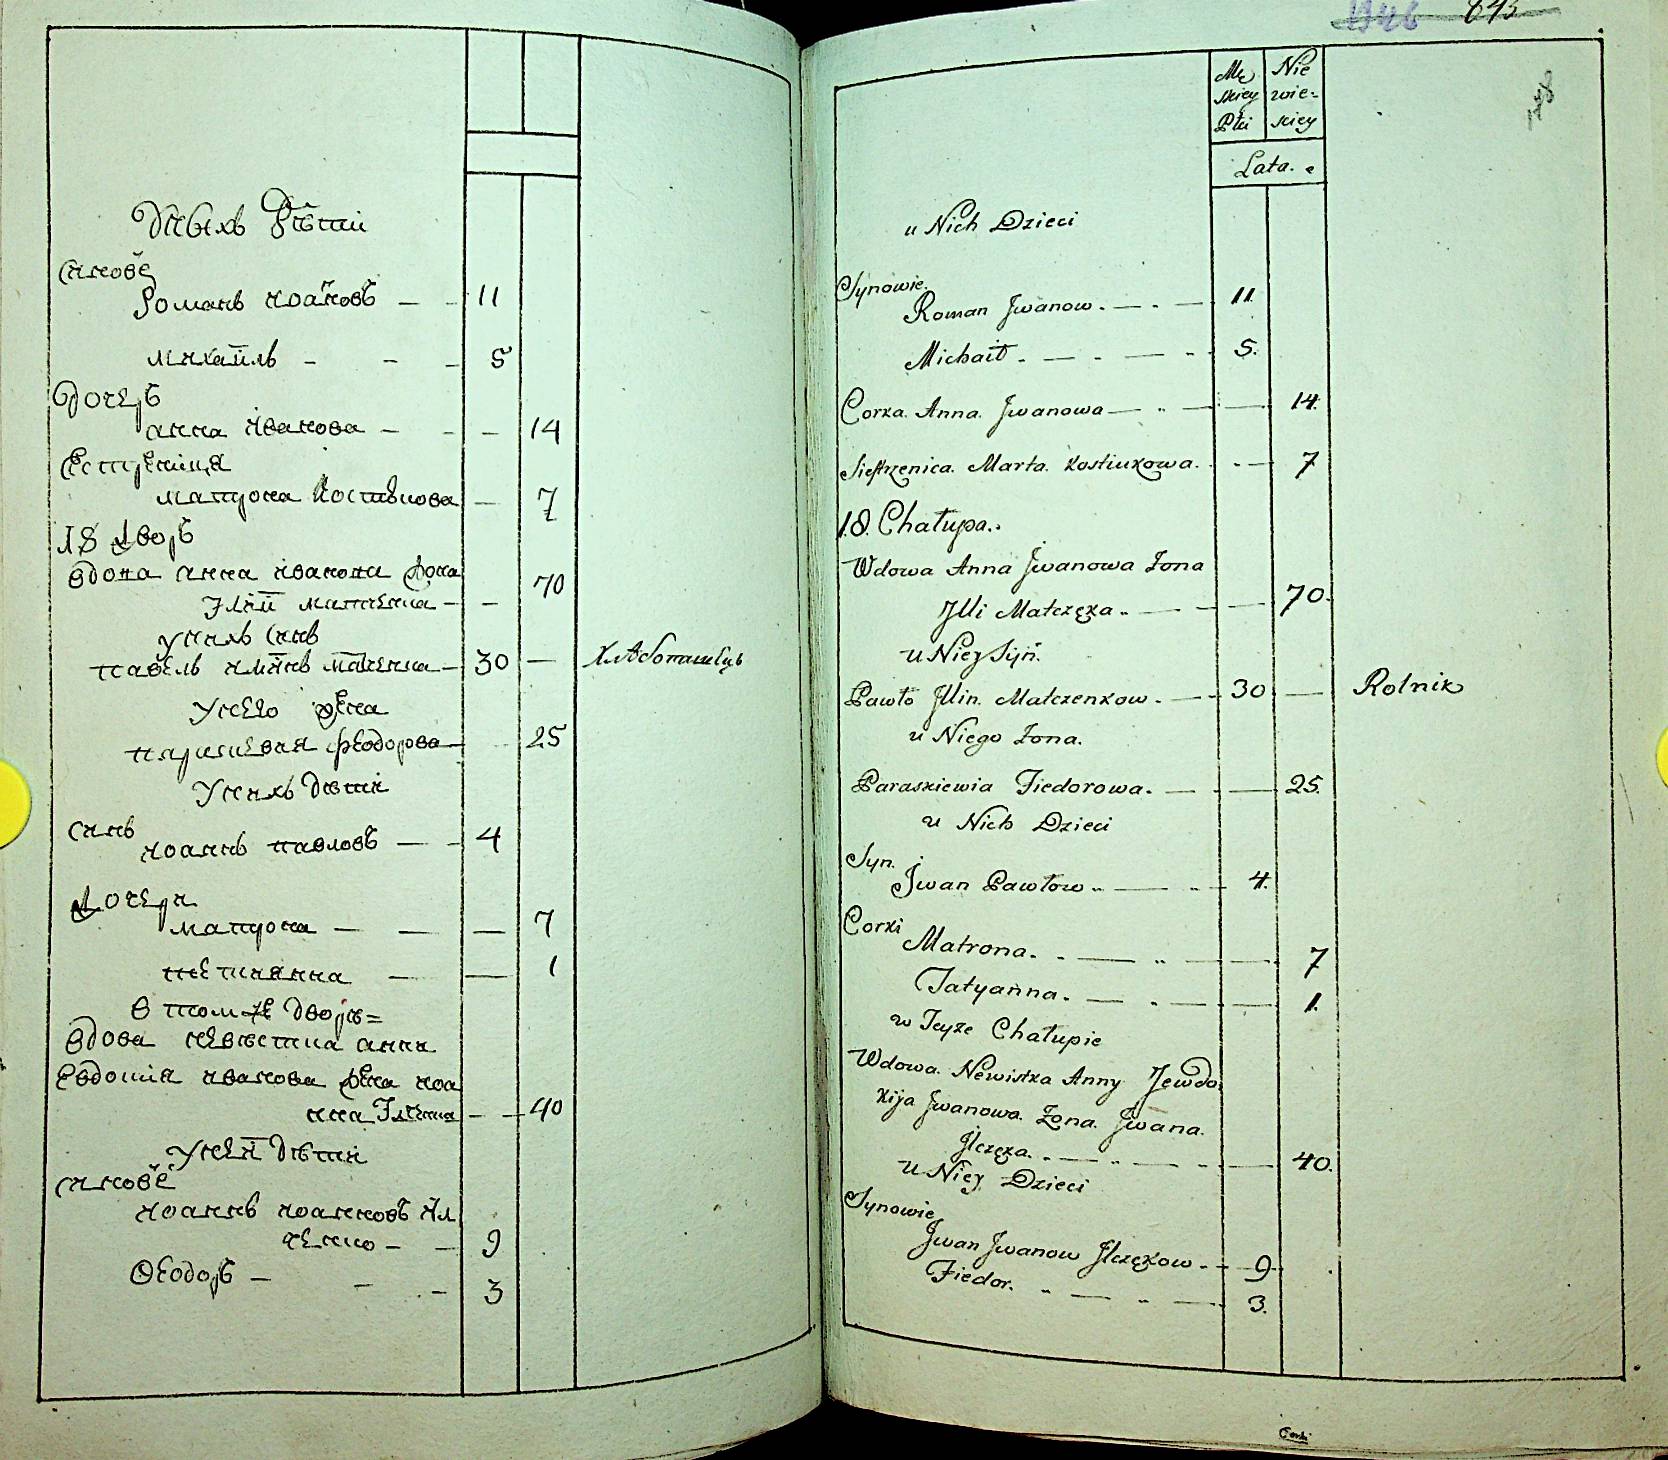 У нихъ дѣти
Синове
Романъ Иоановъ — 11
Михаилъ — 5
Дочерь
Анна Иванова — 14
Сестреница
Матрона Костюкова — 7
18 Дворъ
Вдова Анна Иванова жена
Илии Матченка — 70
У нихъ синъ
Павелъ Илиинъ Матченко — 30 — Хлѣбопашецъ
У него жена
Параскевая Феодорова 25
У нихъ дѣти
Синъ
Иоаннъ Павловъ — 4
Дочери
Матрона — 7
Тетиянна — 1
В томже дворѣ=
Вдова невѣстка Анни
Евдокия Иванова жена Иоа
нна Илченка — 40
У неи дѣти
Синове
Иоаннъ Иоанновъ Ил
ченко — 9
Ѳеодоръ — 3
1346 843
188
Mę Nie
skiey wie=
Płci skiey
Lata.
u Nich Dzieci
Synowie.
Roman Jwanow. — 11
Michaił. — 5.
Corka. Anna. Jwanowa — 14.
Siestrzenica. Marta. Kostiukowa. — 7
18. Chałupa..
Wdowa Anna Jwanowa Żona
Jlli Matczęka. — 70.
u Niey Syn.
Pawło Jllin. Matczenkow. — 30 — Rolnik
u Niego Żona.
Paraskiewia Fiedorowa. — 25.
u Nich Dzieci
Syn.
Jwan Pawłow.. — 4.
Corki
Matrona. — 7
Tatyanna. — 1.
w Teyże Chałupie
Wdowa. Newistka Anny Jewdo
kija Jwanowa. Żona. Jwana.
Jlczęka. — 40.
u Niey Dzieci
Synowie
Jwan Jwanow Jlczękow. — 9
Fiedor. — 3.
Corki